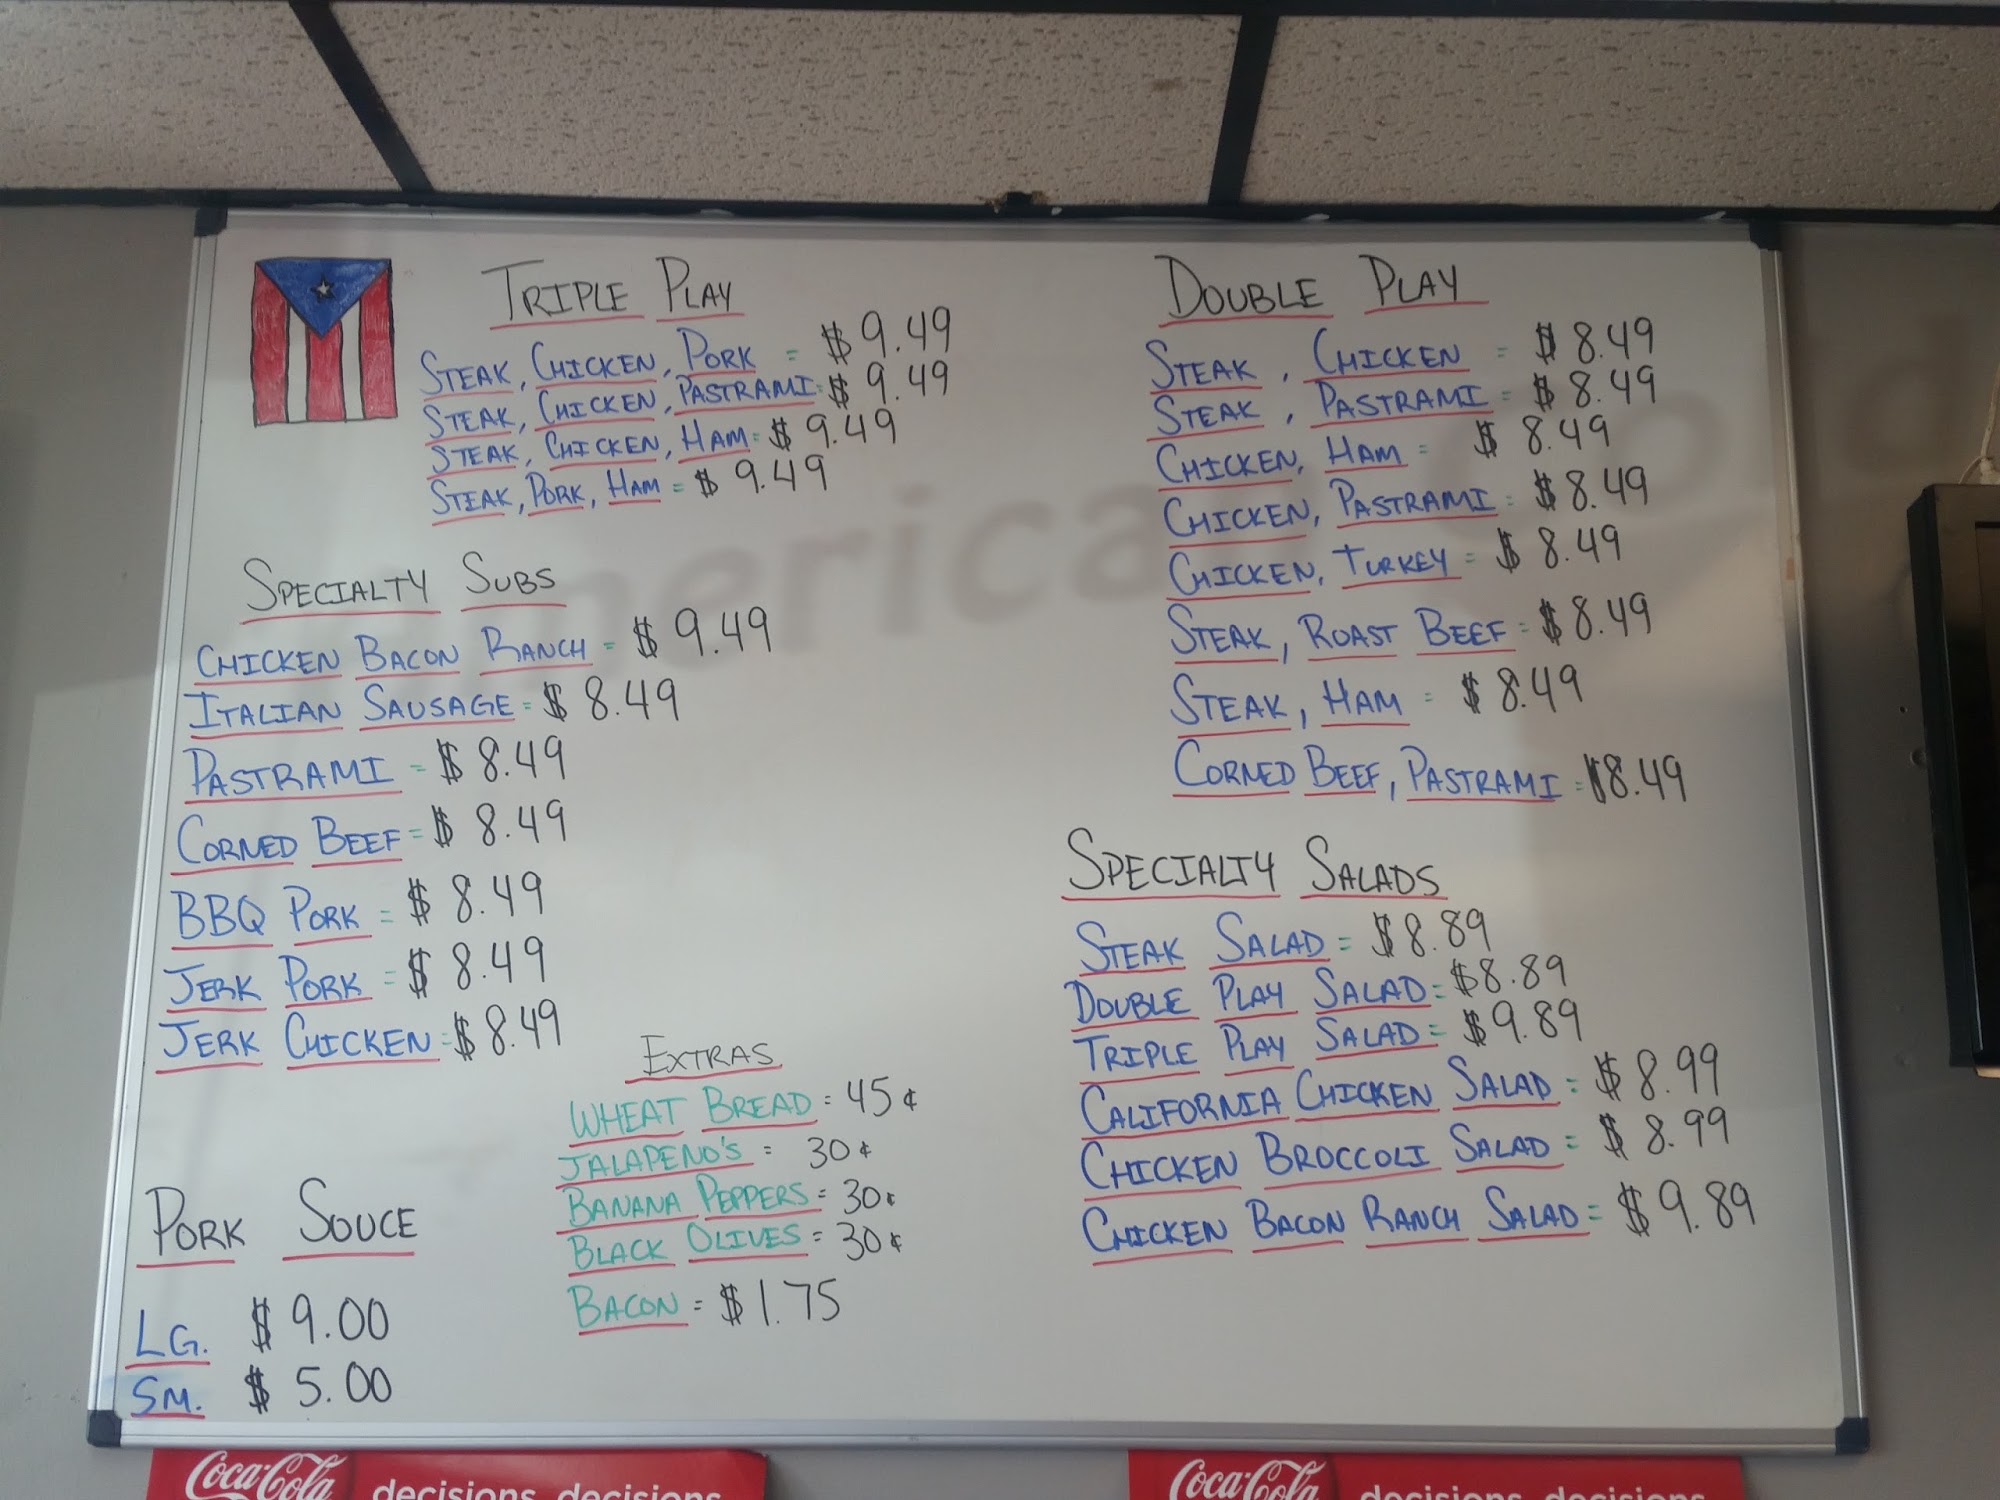 TRIPLE PLAY
STEAK, CHICKEN, PORK = $9.49
STEAK, CHICKEN, PASTRAMI = $9.49
STEAK, CHICKEN, HAM = $9.49
STEAK, PORK, HAM = $9.49
SPECIALTY SUBS
CHICKEN BACON RANCH = $9.49
ITALIAN SAUSAGE = $8.49
PASTRAMI = $8.49
CORNED BEEF = $8.49
BBQ PORK = $8.49
JERK PORK = $8.49
JERK CHICKEN = $8.49
PORK SOUCE
LG. $9.00
SM. $5.00
EXTRAS
WHEAT BREAD = 45¢
JALAPENO'S = 30¢
BANANA PEPPERS = 30¢
BLACK OLIVES = 30¢
BACON = $1.75
DOUBLE PLAY
STEAK, CHICKEN = $8.49
STEAK, PASTRAMI = $8.49
CHICKEN, HAM = $8.49
CHICKEN, PASTRAMI = $8.49
CHICKEN, TURKEY = $8.49
STEAK, ROAST BEEF = $8.49
STEAK, HAM = $8.49
CORNED BEEF, PASTRAMI = $8.49
SPECIALTY SALADS
STEAK SALAD = $8.89
DOUBLE PLAY SALAD = $8.89
TRIPLE PLAY SALAD = $9.89
CALIFORNIA CHICKEN SALAD = $8.99
CHICKEN BROCCOLI SALAD = $8.99
CHICKEN BACON RANCH SALAD = $9.89
American
Coca-Cola decisions, decisions
Coca-Cola decisions, decisions